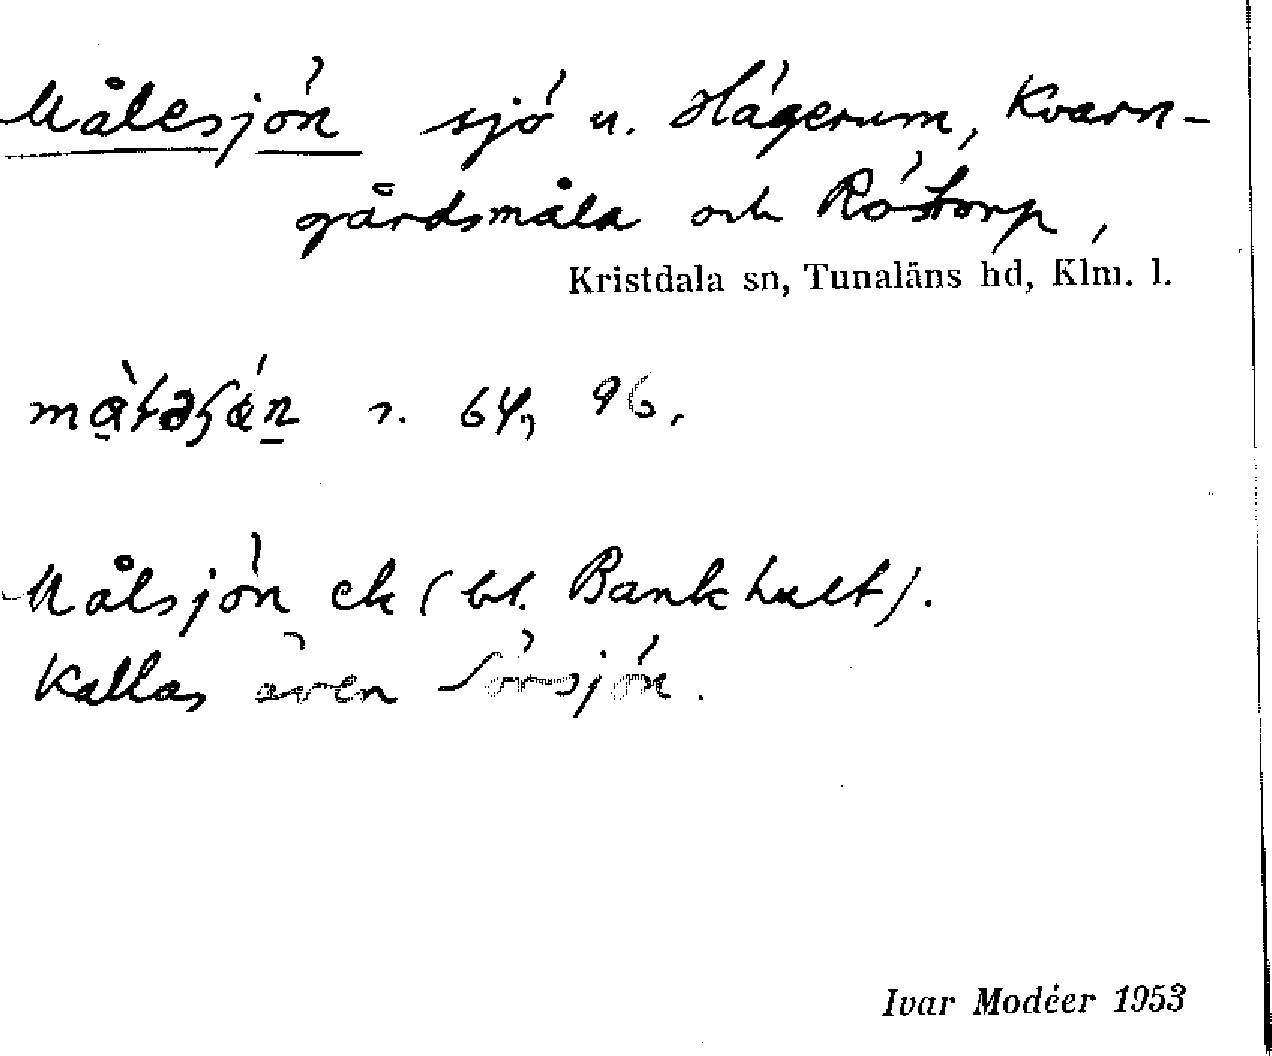 Målesjön sjö u. Hägerum, Kvarn-
gårdsmåla och Röstorp,
Kristdala sn, Tunaläns hd, Klm. l.
s. 64, 96.
Målsjön ek (bl. Bankhult).
Kallas även Sörsjön.
Ivar Modéer 1953